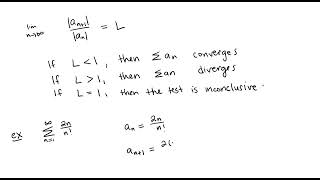 lim n→∞ |aₙ₊₁| / |aₙ| = L
If L < 1, then Σ aₙ converges
If L > 1, then Σ aₙ diverges
If L = 1, then the test is inconclusive.
ex ∑ₙ₌₁^∞ 2n/n! aₙ = 2n/n!
aₙ₊₁ = 2(